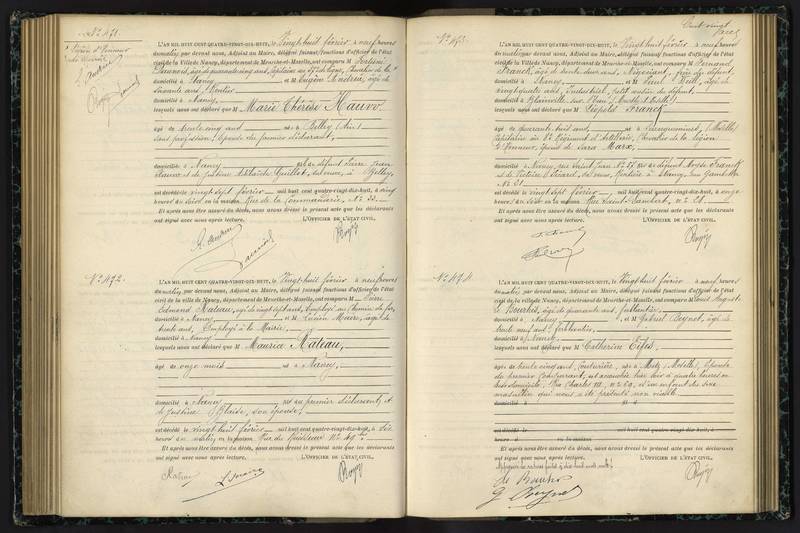 N° 491.
L'AN MIL HUIT CENT QUATRE-VINGT-DIX-HUIT, le Vingt huit février à neuf heures
du matin par devant nous, Adjoint au Maire, délégué faisant fonctions d'officier de l'état
civil de la ville de Nancy, département de Meurthe-et-Moselle, ont comparu M
âgé de quarante cinq ans, Capitaine au de ligne, Chevalier de la
domicilié à Nancy et M Eugène âgé de
soixante ans, Rentier
domicilié à Nancy,
lesquels nous ont déclaré que M Marie Thérèse Hauvo
âgé de trente cinq ans né à Belley (Ain)
sans profession, épouse du premier déclarant,
domicilié à Nancy né de défunt Pierre Jean
et de Justine Adélaïde Guillot, sa veuve, à Belley,
est décédé le vingt sept février mil huit cent quatre-vingt-dix-huit, à cinq
heures du soir en la maison Rue de la Commanderie, N° 33.
Et après nous être assuré du décès, nous avons dressé le présent acte que les déclarants
ont signé avec nous après lecture. L'OFFICIER DE L'ÉTAT CIVIL,
N° 492.
L'AN MIL HUIT CENT QUATRE-VINGT-DIX-HUIT, le Vingt huit février à neuf heures
du matin par devant nous, Adjoint au Maire, délégué faisant fonctions d'officier de l'état
civil de la ville de Nancy, département de Meurthe-et-Moselle, ont comparu M Pierre
Edmond Mateau, âgé de vingt sept ans, Employé au Chemin de fer,
domicilié à Nancy et M Lucien Maire, âgé de
trente ans, Employé à la Mairie,
domicilié à Nancy
lesquels nous ont déclaré que M Maurice Mateau,
âgé de onze mois né à Nancy,
domicilié à Nancy né du premier déclarant et
de Justine Blaise, son épouse,
est décédé le vingt huit février mil huit cent quatre-vingt-dix-huit, à six
heures du matin en la maison Rue de N° 49 bis
Et après nous être assuré du décès, nous avons dressé le présent acte que les déclarants
ont signé avec nous après lecture. L'OFFICIER DE L'ÉTAT CIVIL,
L. Maire
Cent vingt
N° 493.
L'AN MIL HUIT CENT QUATRE-VINGT-DIX-HUIT, le Vingt huit février à neuf heures
du matin par devant nous, Adjoint au Maire, délégué faisant fonctions d'officier de l'état
civil de la ville de Nancy, département de Meurthe-et-Moselle, ont comparu M Fernand
Franck, âgé de trente deux ans, Négociant, frère du défunt,
domicilié à Nancy, et M Paul Weill, âgé de
vingt quatre ans, Industriel, petit cousin du défunt,
domicilié à Blainville sur l'Eau (Meurthe et Moselle)
lesquels nous ont déclaré que M Léopold Franck
âgé de quarante huit ans, né à (Moselle)
Capitaine au Régiment d'Artillerie, Chevalier de la Légion
d'Honneur, époux de Sara Marx,
domicilié à Nancy, rue Saint Jean N° 27 né de défunt Moyse Franck
et de sa veuve, rentière à Nancy, rue Gambetta
N° 21
est décédé le vingt sept février mil huit cent quatre-vingt-dix-huit, à onze
heures du soir en la maison Rue Saint Lambert, n° 21.
Et après nous être assuré du décès, nous avons dressé le présent acte que les déclarants
ont signé avec nous après lecture. L'OFFICIER DE L'ÉTAT CIVIL,
N° 494
L'AN MIL HUIT CENT QUATRE-VINGT-DIX-HUIT, le Vingt huit février à neuf heures
du matin par devant nous, Adjoint au Maire, délégué faisant fonctions d'officier de l'état
civil de la ville de Nancy, département de Meurthe-et-Moselle, ont comparu M Louis Auguste
le âgé de quarante ans,
domicilié à Nancy et M Gabriel âgé de
trente neuf ans,
domicilié à Nancy
lesquels nous ont déclaré que M Catherine
âgé de trente cinq ans Couturière, née à Metz (Moselle), épouse
du premier comparant, est accouchée hier soir à quatre heures en
son domicile, Rue Charles III, n° 29, d'un enfant du sexe
masculin qui nous a été présenté non viable.
domicilié à né à
est décédé le mil huit cent quatre-vingt-dix-huit, à
heures d en la maison
Et après nous être assuré du décès, nous avons dressé le présent acte que les déclarants
ont signé avec nous après lecture. L'OFFICIER DE L'ÉTAT CIVIL,